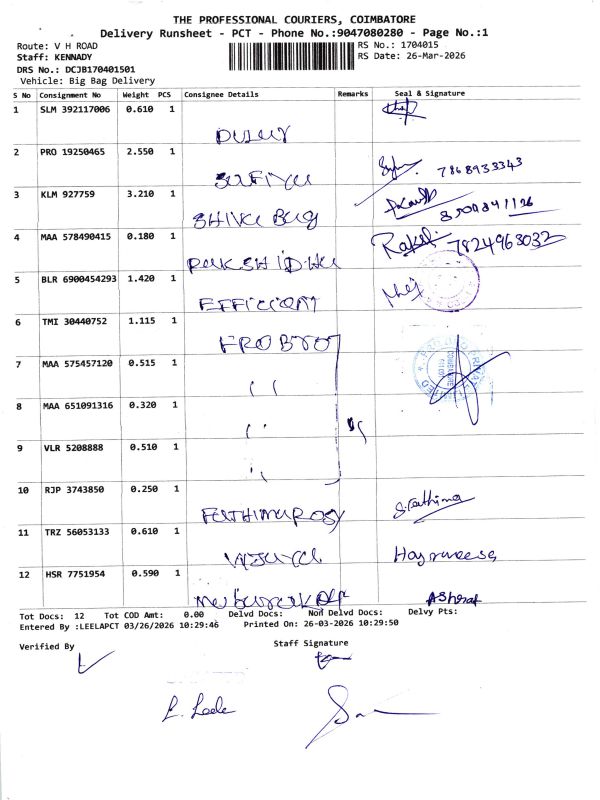 THE PROFESSIONAL COURIERS, COIMBATORE
Delivery Runsheet - PCT - Phone No.:9047080280 - Page No.:1
Route: V H ROAD
RS No.: 1704015
Staff: KENNADY
RS Date: 26-Mar-2026
DRS No.: DCJB170401501
Vehicle: Big Bag Delivery
S No Consignment No Weight PCS Consignee Details Remarks Seal & Signature
1 SLM 392117006 0.610 1
2 PRO 19250465 2.550 1
SUFIYU 7868933343
3 KLM 927759 3.210 1
SHIVU BUG
4 MAA 578490415 0.180 1
RAKSHIDHU Rakshi 7824963032
5 BLR 6900454293 1.420 1
EFFICIONT
6 TMI 30440752 1.115 1
FROBTOT
7 MAA 575457120 0.515 1
''
8 MAA 651091316 0.320 1
''
9 VLR 5208888 0.510 1
''
10 RJP 3743850 0.250 1
FUTHIMUROSY S.Fathima
11 TRZ 56053133 0.610 1
12 HSR 7751954 0.590 1
AShraf
Tot Docs: 12 Tot COD Amt: 0.00 Delvd Docs: Non Delvd Docs: Delvy Pts:
Entered By :LEELAPCT 03/26/2026 10:29:46 Printed On: 26-03-2026 10:29:50
Verified By Staff Signature
L. Leela